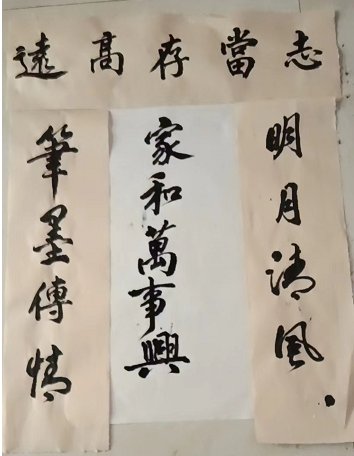 志當存高遠
明月清風
家和萬事興
筆墨傳情